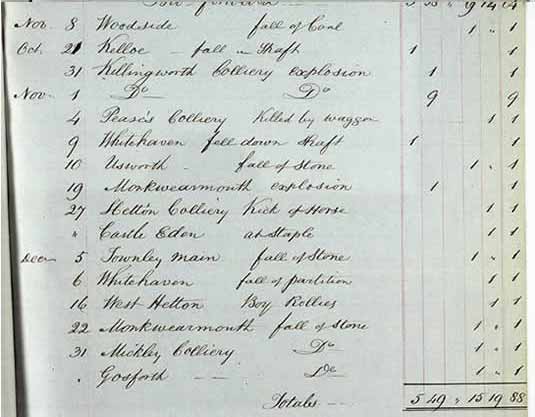 forward
Nov. 8 Woodside fall of Coal 1 " 1
Oct. 21 Kelloe - fall in Shaft 1 1
31 Killingworth Colliery explosion 1 1
Nov. 1 Do Do 9 9
4 Pease's Colliery Killed by waggon 1 1
9 Whitehaven fell down Shaft 1 1
10 Usworth - fall of Stone 1 " 1
19 Monkwearmouth explosion 1 1
27 Hetton Colliery Kick of Horse 1 1
" Castle Eden at Staple 1 1
Decr 5 Townley Main fall of Stone 1 " 1
6 Whitehaven fall of partition 1 1
16 West Hetton Boy Rollies 1 1
22 Monkwearmouth fall of Stone 1 " 1
31 Mickley Colliery Do 1 " 1
" Gosforth - - Do 1 " 1
Totals - - 5 49 " 15 19 88